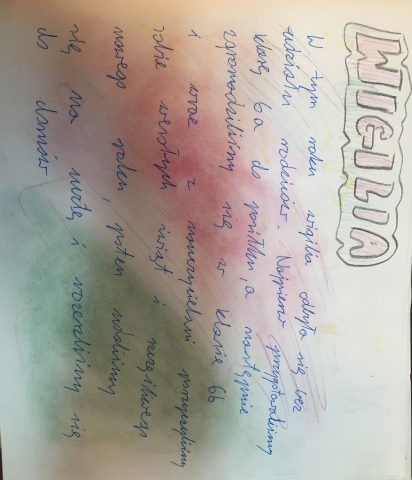 WIGILIA
W tym roku wigilia odbyła się bez
udziału rodziców. Najpierw przygotowaliśmy
klasę 6a do posiłku, a następnie
zgromadziliśmy się w klasie 6b
i wraz z nauczycielami życzyliśmy
sobie wesołych świąt i szczęśliwego
nowego roku, potem udaliśmy
się na mszę i rozeszliśmy się
do domów